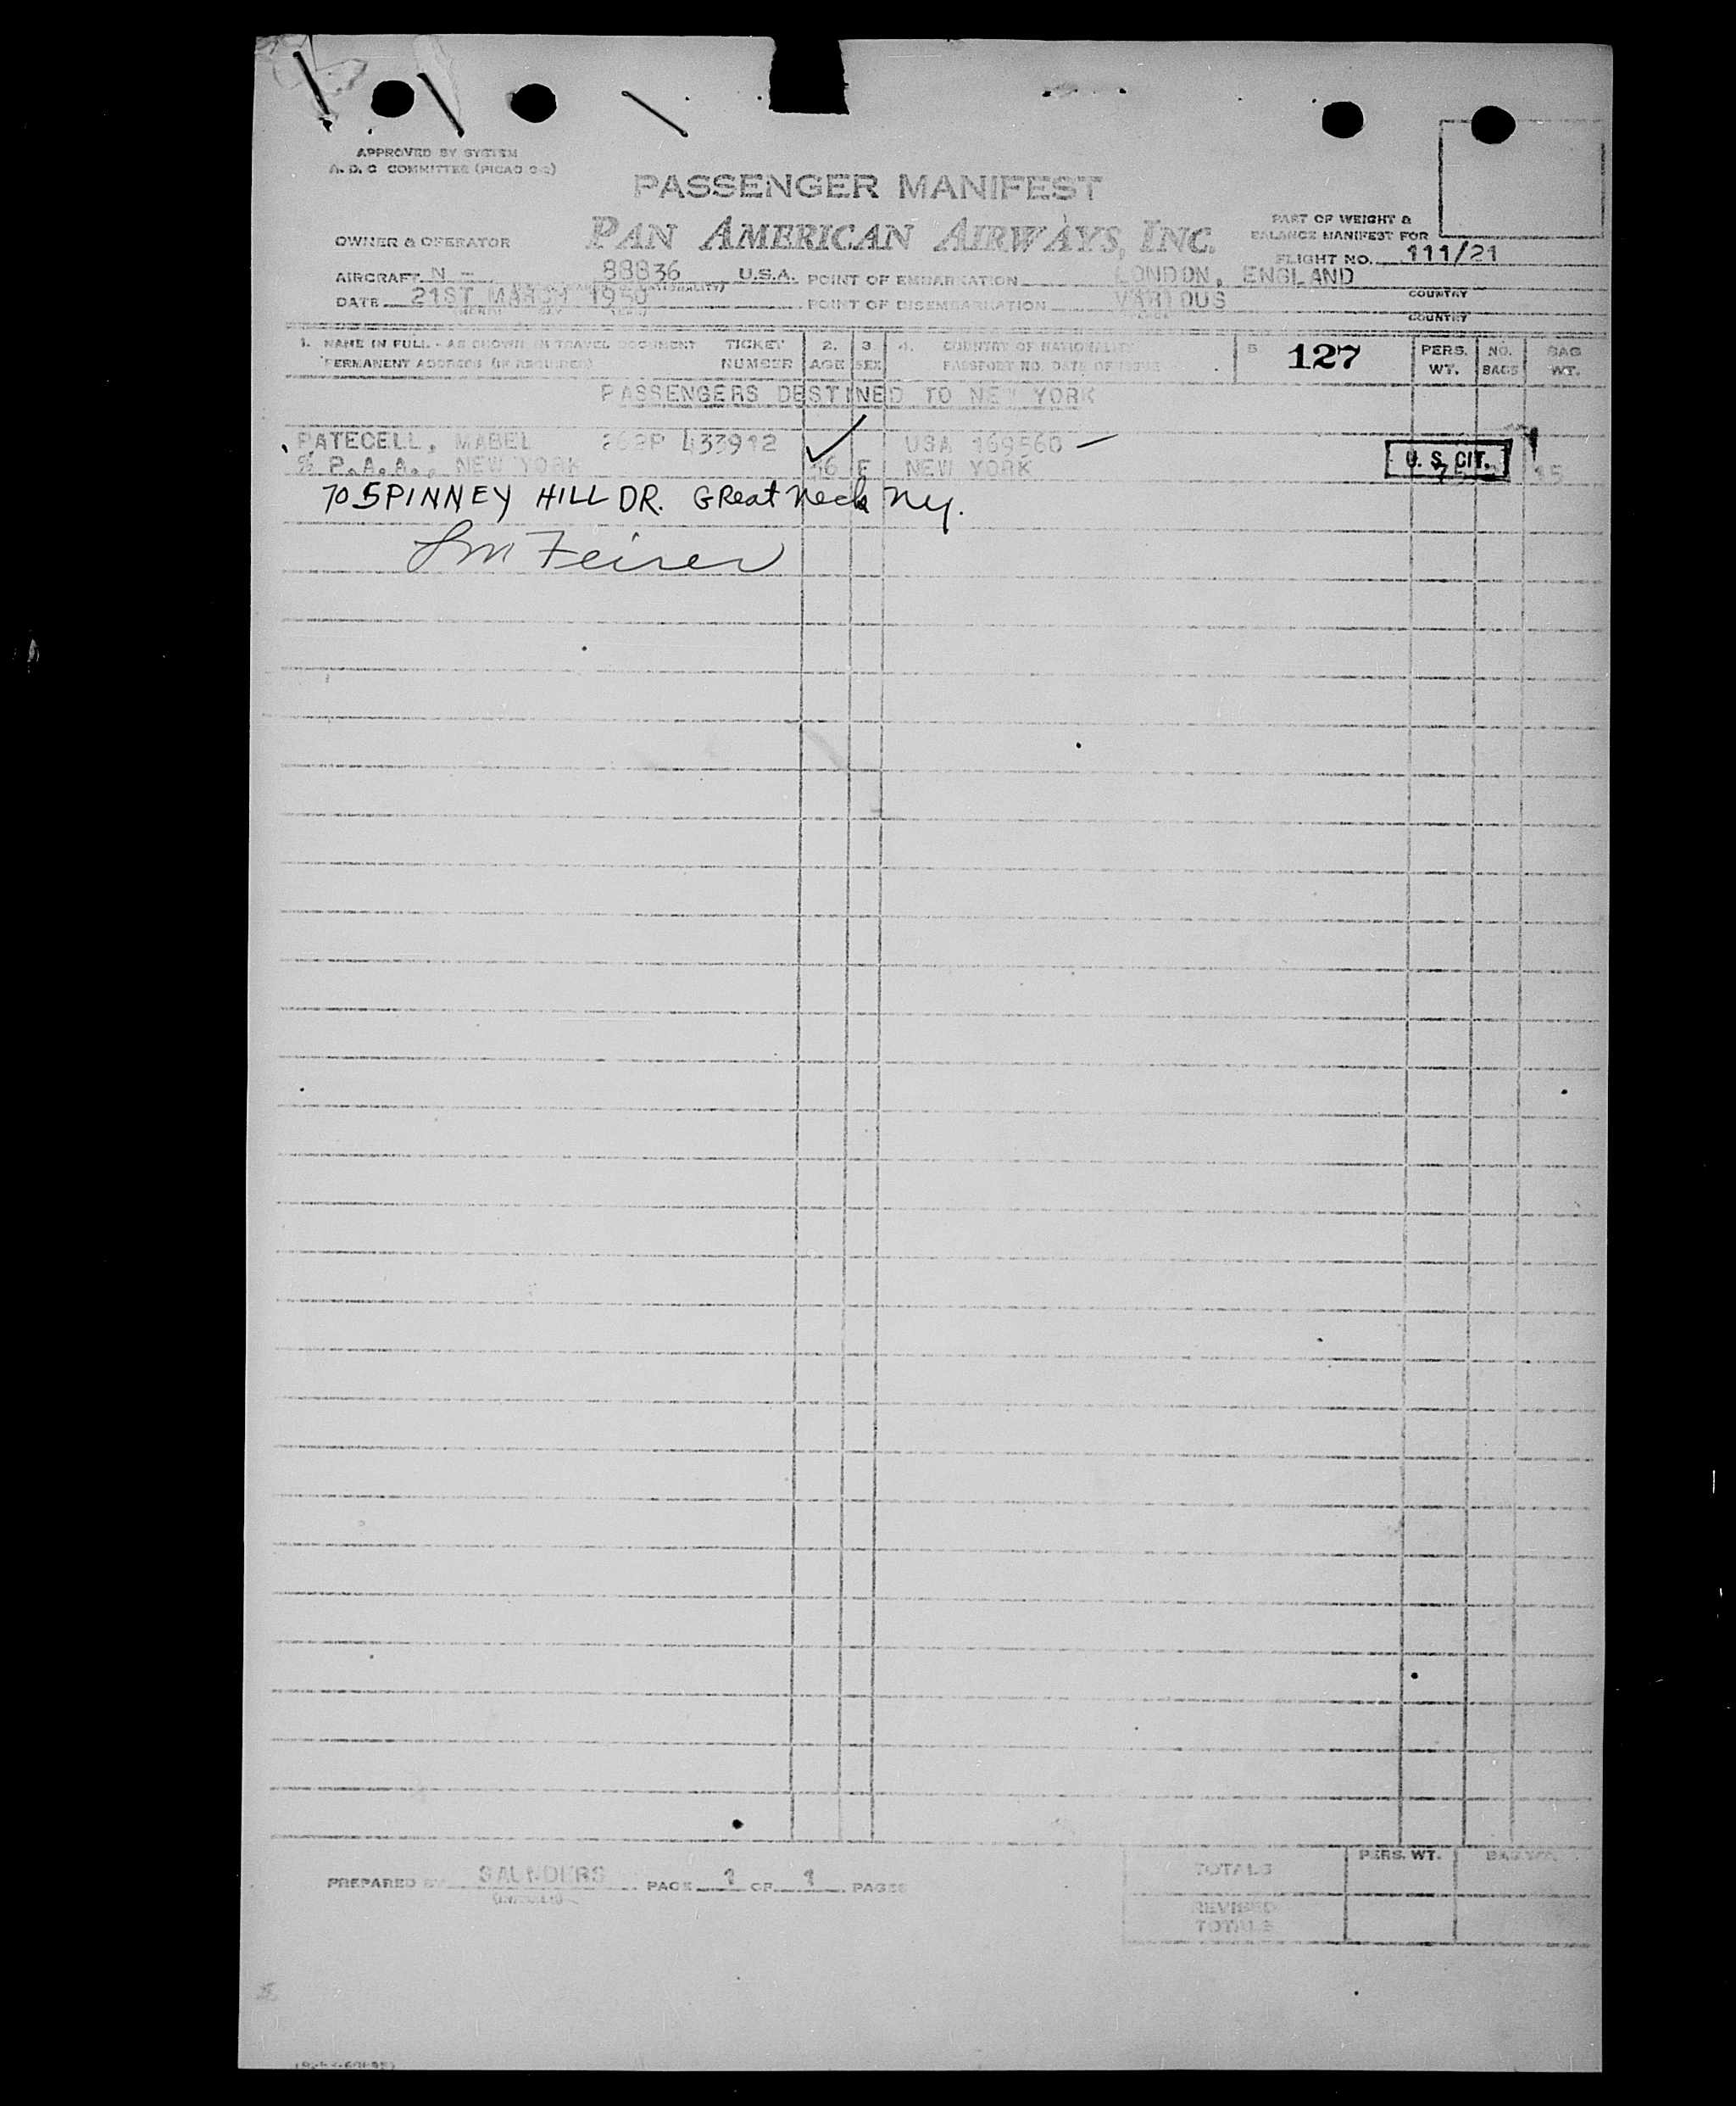 APPROVED BY SYSTEM
A. D. C COMMITTEE (PICAO 2-2)
PASSENGER MANIFEST
OWNER & OPERATOR PAN AMERICAN AIRWAYS, INC.
PART OF WEIGHT &
BALANCE MANIFEST FOR
FLIGHT NO. 111/21
AIRCRAFT N - 88836 U.S.A. POINT OF EMBARKATION LONDON, ENGLAND
COUNTRY
DATE 21ST MARCH 1950 POINT OF DISEMBARKATION VARIOUS
COUNTRY
1. NAME IN FULL - AS SHOWN IN TRAVEL DOCUMENT TICKET 2. 3. 4. COUNTRY OF NATIONALITY 5. 127 PERS. NO. BAG
PERMANENT ADDRESS (IF REQUIRED) NUMBER AGE SEX PASSPORT NO. DATE OF ISSUE WT. BAGS WT.
PASSENGERS DESTINED TO NEW YORK
PATECELL, MABEL 262P 433912 USA 169560 -
% P.A.A., NEW YORK F NEW YORK U. S. CIT. 15
70 SPINNEY HILL DR. GReat Neck Ny.
PREPARED BY SAUNDERS PAGE 1 OF 1 PAGES
TOTALS PERS. WT. BAG WT.
REVISED
TOTALS